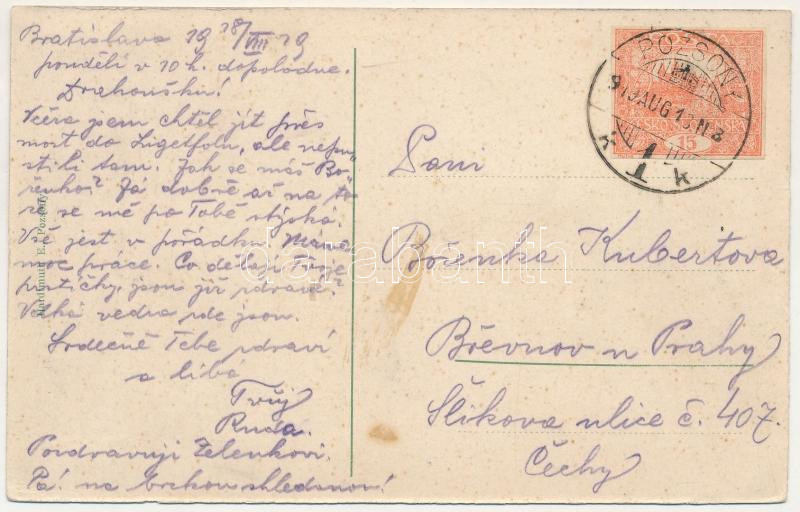 Bratislava 19 18/VIII 19
pondělí v 10 h. dopoledne.
Drahoušku!
Včera jsem chtěl jít přes
most do Ligetfalu, ale nepu-
stili tam. Jak se máš Bo-
ženko? Já dobře až na to
že se mě po Tobě stýská.
Vše jest v pořádku. Máme
moc práce. Co dělají Tvoje
prstíčky, jsou již zdravé?
Velká vedra zde jsou.
Srdečně Tebe zdraví
a líbá
Tvůj
Ruda.
Pozdravuji Zelenkovi.
Pá! na brzkou shledanou!
Hartlmuth E., Pozsony
POZSONY
919 AUG 18 N 3
15
Paní
Boženka Kubertova
Břevnov u Prahy
Šlikova ulice č. 407.
Čechy
darabanth